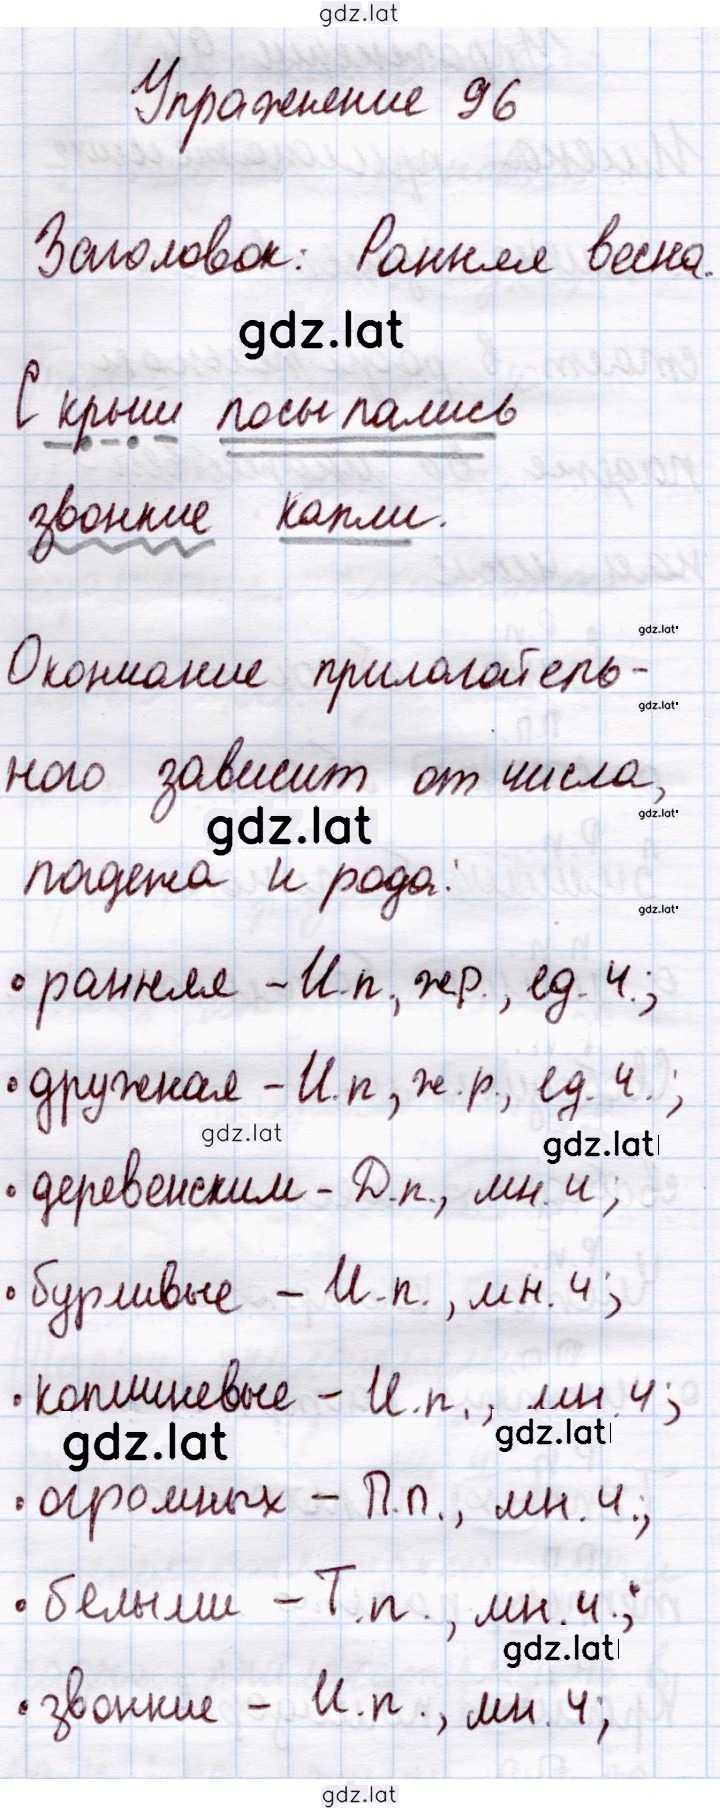 gdz.lat
Упражнение 96
Заголовок: Ранняя весна.
gdz.lat
С крыши посыпались
звонкие капли.
gdz.lat
Окончание прилагатель-
gdz.lat
ного зависит от числа,
gdz.lat
gdz.lat
падежа и рода:
gdz.lat
• ранняя - И.п., ж.р., ед. ч.;
• дружная - И.п., ж.р., ед. ч.;
gdz.lat
gdz.lat
• деревенским - Д.п., мн. ч;
• бурливые - И.п., мн. ч;
• коричневые - И.п., мн. ч;
gdz.lat
gdz.lat
• огромных - П.п., мн. ч.;
• белыми - Т.п., мн. ч.;
gdz.lat
• звонкие - И.п., мн. ч;
gdz.lat